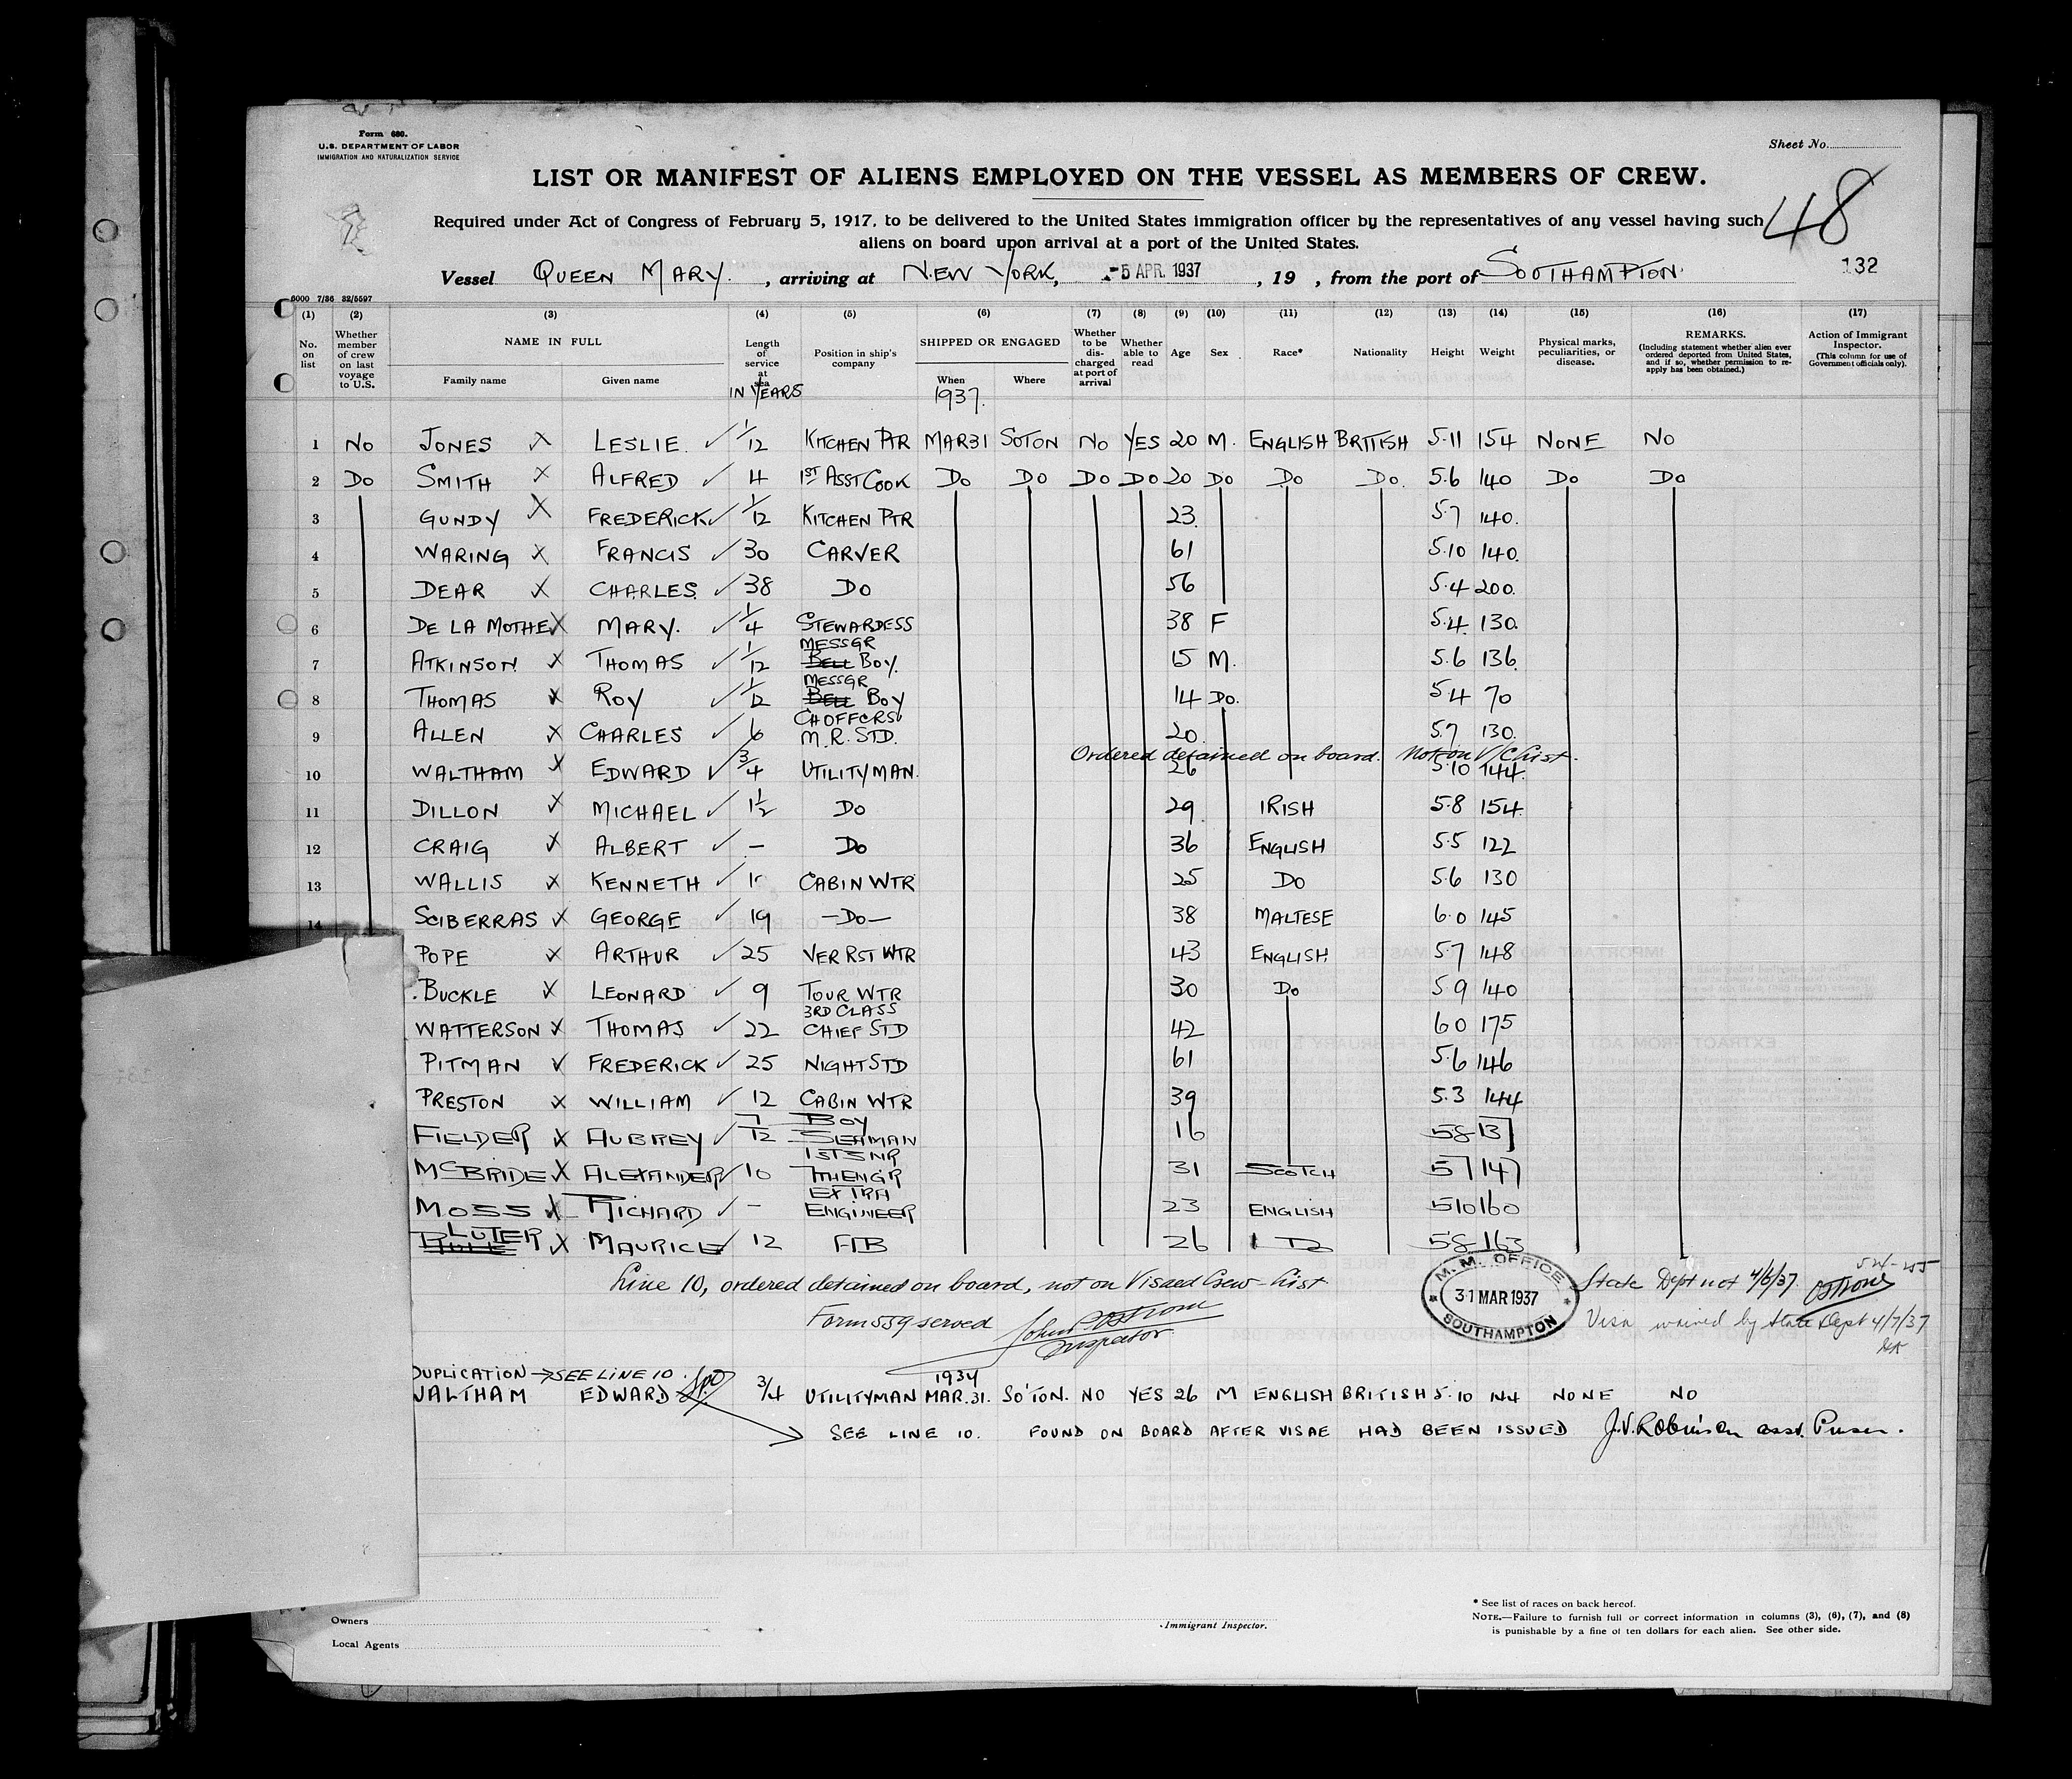 Form 680.
U.S. DEPARTMENT OF LABOR
IMMIGRATION AND NATURALIZATION SERVICE
Sheet No.
LIST OR MANIFEST OF ALIENS EMPLOYED ON THE VESSEL AS MEMBERS OF CREW.
48
Required under Act of Congress of February 5, 1917, to be delivered to the United States immigration officer by the representatives of any vessel having such
aliens on board upon arrival at a port of the United States.
Vessel QUEEN MARY. , arriving at NEW YORK, -5 APR. 1937 , 19 , from the port of SOUTHAMPTON.
132
6000 7/36 32/5597
(1) (2) (3) (4) (5) (6) (7) (8) (9) (10) (11) (12) (13) (14) (15) (16) (17)
No. on list
Whether member of crew on last voyage to U.S.
NAME IN FULL
Family name Given name
Length of service at sea
IN YEARS
Position in ship's company
SHIPPED OR ENGAGED
When Where
1937.
Whether to be discharged at port of arrival
Whether able to read
Age
Sex
Race*
Nationality
Height
Weight
Physical marks, peculiarities, or disease.
REMARKS.
(Including statement whether alien ever ordered deported from United States, and if so, whether permission to reapply has been obtained.)
Action of Immigrant Inspector.
(This column for use of Government officials only).
1 No JONES X LESLIE. ✓ 1/12 KITCHEN PTR MAR 31 SOTON No YES 20 M. ENGLISH BRITISH 5.11 154 NONE NO
2 Do SMITH X ALFRED ✓ 4 1ST ASST COOK Do Do Do Do 20 Do Do Do. 5.6 140 Do Do
3 GUNDY X FREDERICK ✓ 1/12 KITCHEN PTR 23. 5.7 140.
4 WARING X FRANCIS ✓ 30 CARVER 61 5.10 140.
5 DEAR X CHARLES. ✓ 38 Do 56 5.4 200.
6 DE LA MOTHE X MARY. ✓ 1/4 STEWARDESS 38 F 5.4. 130.
MESSGR
7 ATKINSON X THOMAS ✓ 1/12 BELL BOY. 15 M. 5.6 136.
MESSGR
8 THOMAS X ROY ✓ 1/12 BELL BOY 14 Do. 5.4 70
CHOFFERS
9 ALLEN X CHARLES ✓ 6 M.R. STD. 20. 5.7 130.
Ordered detained on board. Not on V/C List.
10 WALTHAM X EDWARD ✓ 3/4 UTILITYMAN. 26 5.10 144.
11 DILLON X MICHAEL ✓ 1 1/2 Do 29 IRISH 5.8 154.
12 CRAIG X ALBERT ✓ - Do 36 ENGLISH 5.5 122
13 WALLIS X KENNETH ✓ CABIN WTR 25 Do 5.6 130
14 SCIBERRAS X GEORGE ✓ 19 -Do- 38 MALTESE 6.0 145
POPE X ARTHUR ✓ 25 VER RST WTR 43 ENGLISH 5.7 148
BUCKLE X LEONARD ✓ 9 TOUR WTR 30 Do 5 9 140
3RD CLASS
WATTERSON X THOMAS ✓ 22 CHIEF STD 42 6 0 175
PITMAN X FREDERICK ✓ 25 NIGHT STD 61 5.6 146
PRESTON X WILLIAM ✓ 12 CABIN WTR 39 5.3 144
BOY
FIELDER X AUBREY ✓ 7/12 SEAMAN 16 5 8 137
1ST SNR
MCBRIDE X ALEXANDER ✓ 10 7THENGR 31 SCOTCH 5 7 147
EXTRA
MOSS X RICHARD ✓ - ENGINEER 23 ENGLISH 5 10 160
LUTER X MAURICE 12 AB 26 Do 5 8 163
Line 10, ordered detained on board, not on Visaed Crew List
Form 559 served John P Ostrom
Inspector
M.M. OFFICE
31 MAR 1937
SOUTHAMPTON
State Dept not 4/6/37. Ostrom
Visa waived by State Dept 4/7/37
DUPLICATION → SEE LINE 10.
1937
WALTHAM EDWARD 3/4 UTILITYMAN MAR. 31. SO'TON. NO YES 26 M ENGLISH BRITISH 5.10 144 NONE NO
SEE LINE 10. FOUND ON BOARD AFTER VISAE HAD BEEN ISSUED J.V. Robinson asst. Purser.
Owners
Local Agents
Immigrant Inspector.
* See list of races on back hereof.
NOTE.—Failure to furnish full or correct information in columns (3), (6), (7), and (8)
is punishable by a fine of ten dollars for each alien. See other side.